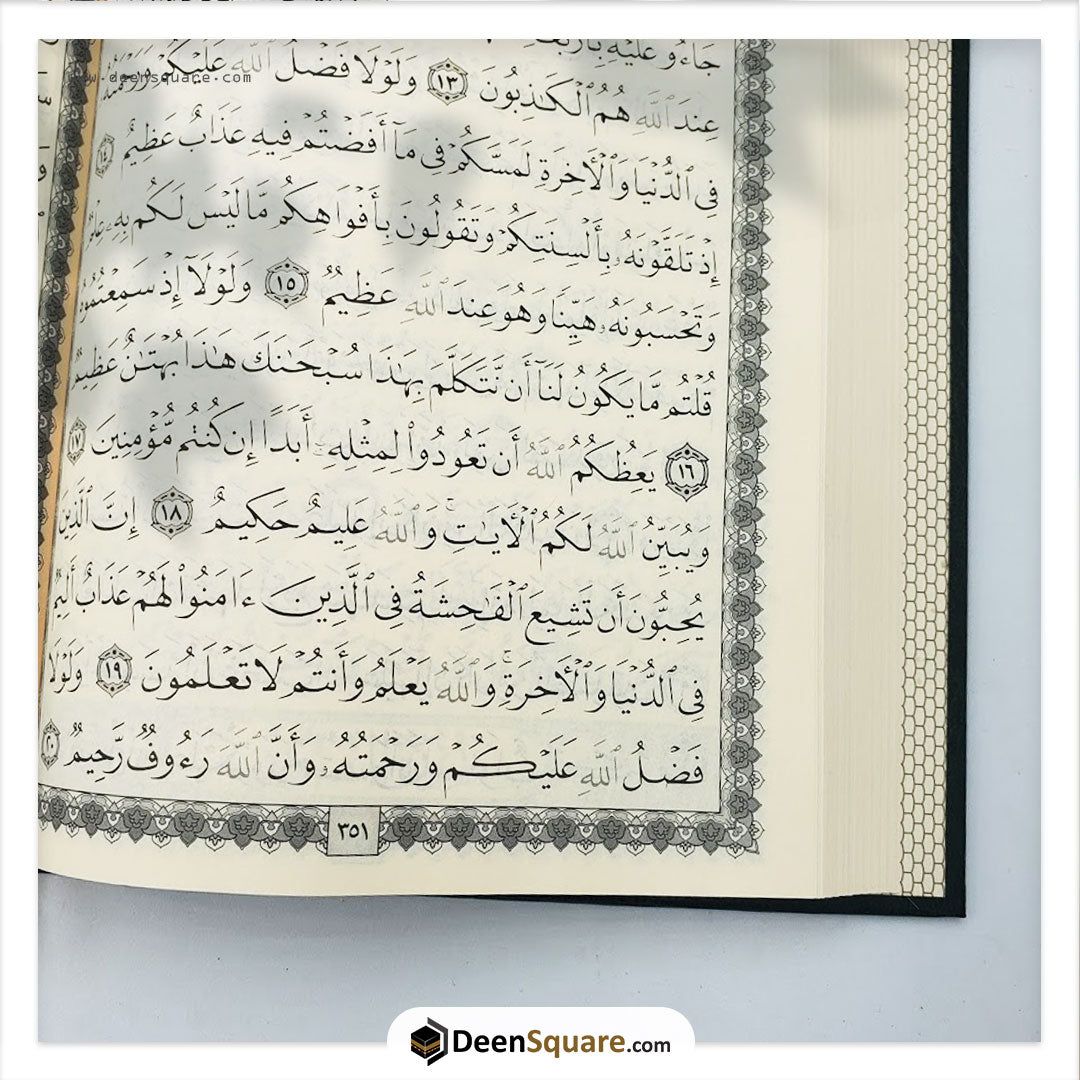 deensquare.com
جَآءُو عَلَيْهِ بِأَرْبَعَةِ
عِندَ ٱللَّهِ هُمُ ٱلْكَٰذِبُونَ ١٣ وَلَوْلَا فَضْلُ ٱللَّهِ عَلَيْكُمْ وَرَحْمَتُهُۥ
فِى ٱلدُّنْيَا وَٱلْأَخِرَةِ لَمَسَّكُمْ فِى مَآ أَفَضْتُمْ فِيهِ عَذَابٌ عَظِيمٌ ١٤
إِذْ تَلَقَّوْنَهُۥ بِأَلْسِنَتِكُمْ وَتَقُولُونَ بِأَفْوَاهِكُم مَّا لَيْسَ لَكُم بِهِۦ عِلْمٌ
وَتَحْسَبُونَهُۥ هَيِّنًا وَهُوَ عِندَ ٱللَّهِ عَظِيمٌ ١٥ وَلَوْلَآ إِذْ سَمِعْتُمُوهُ
قُلْتُم مَّا يَكُونُ لَنَآ أَن نَّتَكَلَّمَ بِهَٰذَا سُبْحَٰنَكَ هَٰذَا بُهْتَٰنٌ عَظِيمٌ
١٦ يَعِظُكُمُ ٱللَّهُ أَن تَعُودُوا۟ لِمِثْلِهِۦٓ أَبَدًا إِن كُنتُم مُّؤْمِنِينَ ١٧
وَيُبَيِّنُ ٱللَّهُ لَكُمُ ٱلْأَيَٰتِ ۚ وَٱللَّهُ عَلِيمٌ حَكِيمٌ ١٨ إِنَّ ٱلَّذِينَ
يُحِبُّونَ أَن تَشِيعَ ٱلْفَٰحِشَةُ فِى ٱلَّذِينَ ءَامَنُوا۟ لَهُمْ عَذَابٌ أَلِيمٌ
فِى ٱلدُّنْيَا وَٱلْأَخِرَةِ ۚ وَٱللَّهُ يَعْلَمُ وَأَنتُمْ لَا تَعْلَمُونَ ١٩ وَلَوْلَا
فَضْلُ ٱللَّهِ عَلَيْكُمْ وَرَحْمَتُهُۥ وَأَنَّ ٱللَّهَ رَءُوفٌ رَّحِيمٌ ٢٠
٣٥١
DeenSquare.com